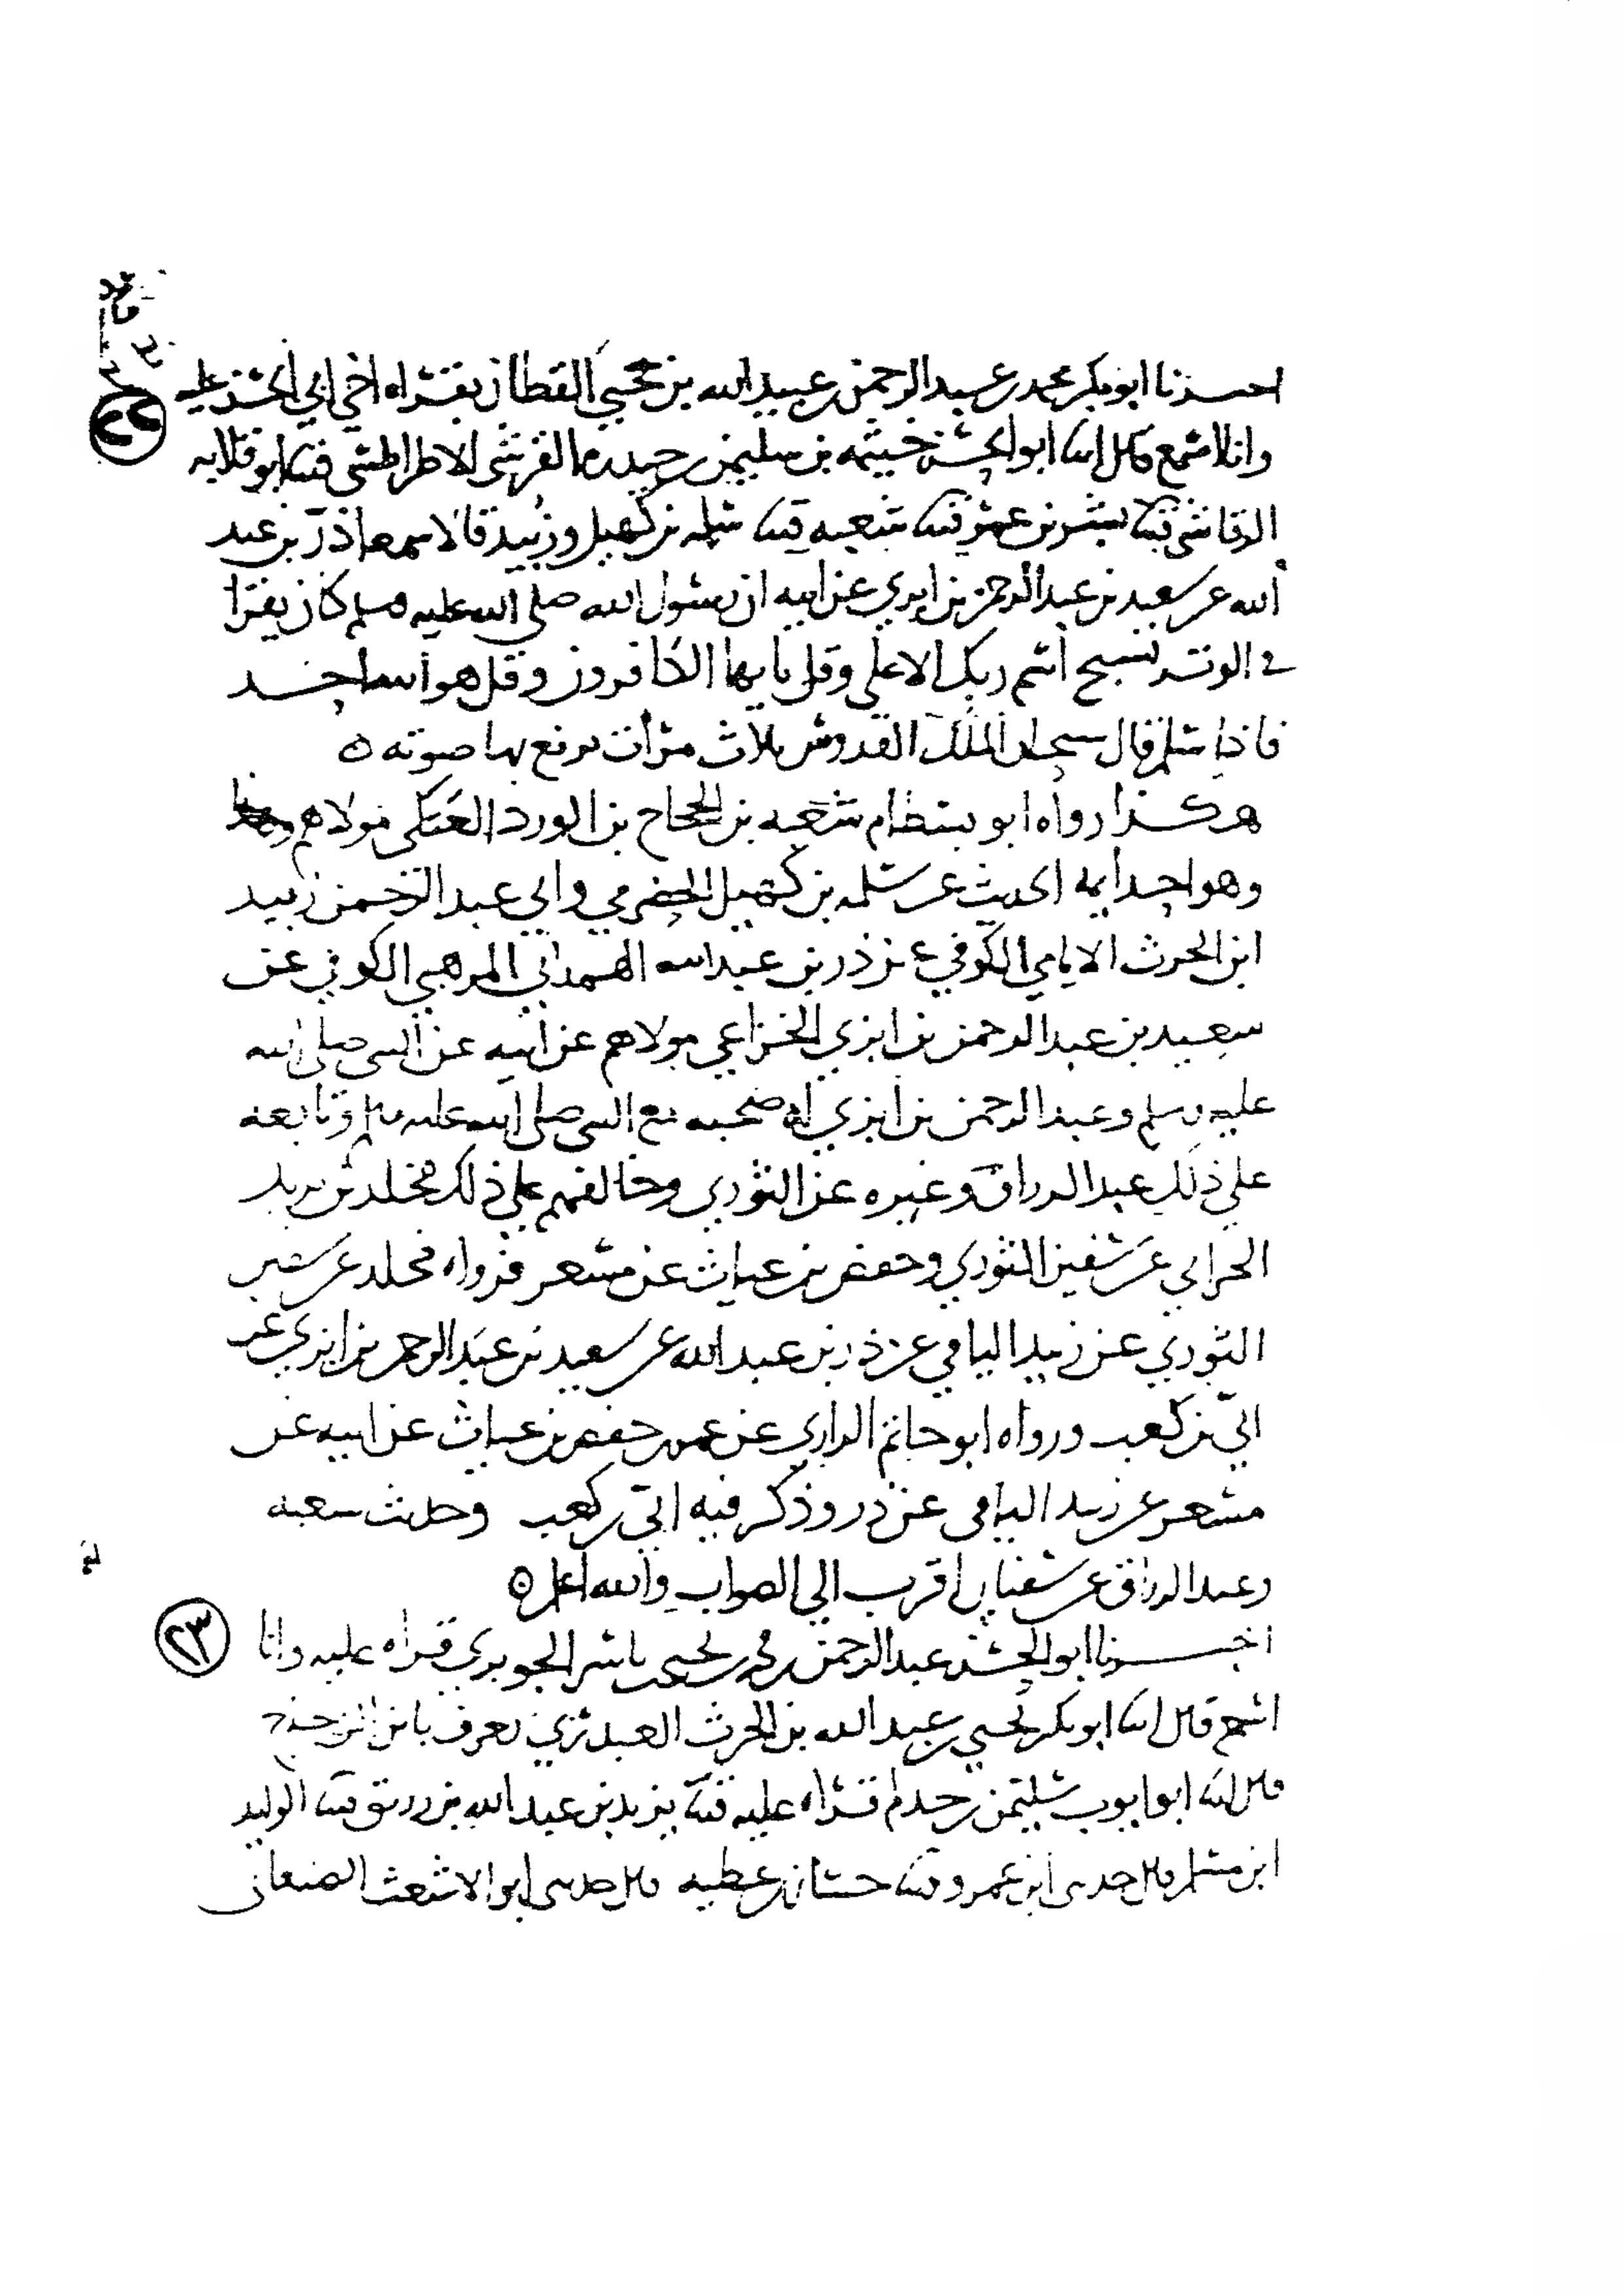 ٢٢
اخبرنا ابو بكر محمد بن عبد الرحمن بن عبيد الله بن يحيى القطان بقراة اخي ابي الحسن عليه
وانا اسمع قال انبا ابو الحسن خيثمه بن سليمن بن حيدره القرشي الاطرابلسي قثنا ابو قلابه
الرقاشي قثنا بشر بن عمر قثنا شعبه قثنا سلمه بن كهيل وزبيد قالا سمعا ذر بن عبد
الله عن سعيد بن عبد الرحمن بن ابزي عن ابيه ان رسول الله صلى الله عليه وسلم كان يقرا
في الوتر بسبح اسم ربك الاعلى وقل يايها الكافرون وقل هو الله احد
فاذا سلم قال سبحان الملك القدوس ثلاث مرات يرفع بها صوته ه
هكذا رواه ابو بسطام شعبه بن الحجاج بن الورد العتكي مولاهم
وهو احد ايمه الحديث عن سلمه بن كهيل الحضرمي وابي عبد الرحمن زبيد
ابن الحرث الايامي الكوفي عن ذر بن عبد الله الهمداني المرهبي الكوفي عن
سعيد بن عبد الرحمن بن ابزي الخزاعي مولاهم عن ابيه عن النبي صلى الله
عليه وسلم وعبد الرحمن بن ابزي له صحبه مع النبي صلى الله عليه وسلم وتابعه
على ذلك عبد الرزاق وغيره عن الثوري وخالفهم علي ذلك مخلد بن يزيد
الحراني عن سفين الثوري وحفص بن غياث عن مسعر فرواه مخلد عن سفين
الثوري عن زبيد اليامي عن ذر بن عبد الله عن سعيد بن عبد الرحمن بن ابزي عن
ابي بن كعب ورواه ابو حاتم الرازي عن عمر بن حفص بن غياث عن ابيه عن
مسعر عن زبيد اليامي عن ذر وذكر فيه ابي بن كعب وحديث شعبه
وعبد الرزاق عن سفيان اقرب الى الصواب والله اعلم ه
٢٣
اخبرنا ابو الحسن عبد الرحمن بن محمد بن يحيى بن ياسر الجوبري قراه عليه وانا
اسمع قال انبا ابو بكر يحيى بن عبد الله بن الحرث العبدري يعرف بابن الزجاج
قال انبا ابو ايوب سليمن بن حذلم قراه عليه قثنا يزيد بن عبد الله بن رزيق قثنا الوليد
ابن مسلم قال حدثني ابن عمرو قثنا حسان بن عطيه قال حدثني ابو الاشعث الصنعاني